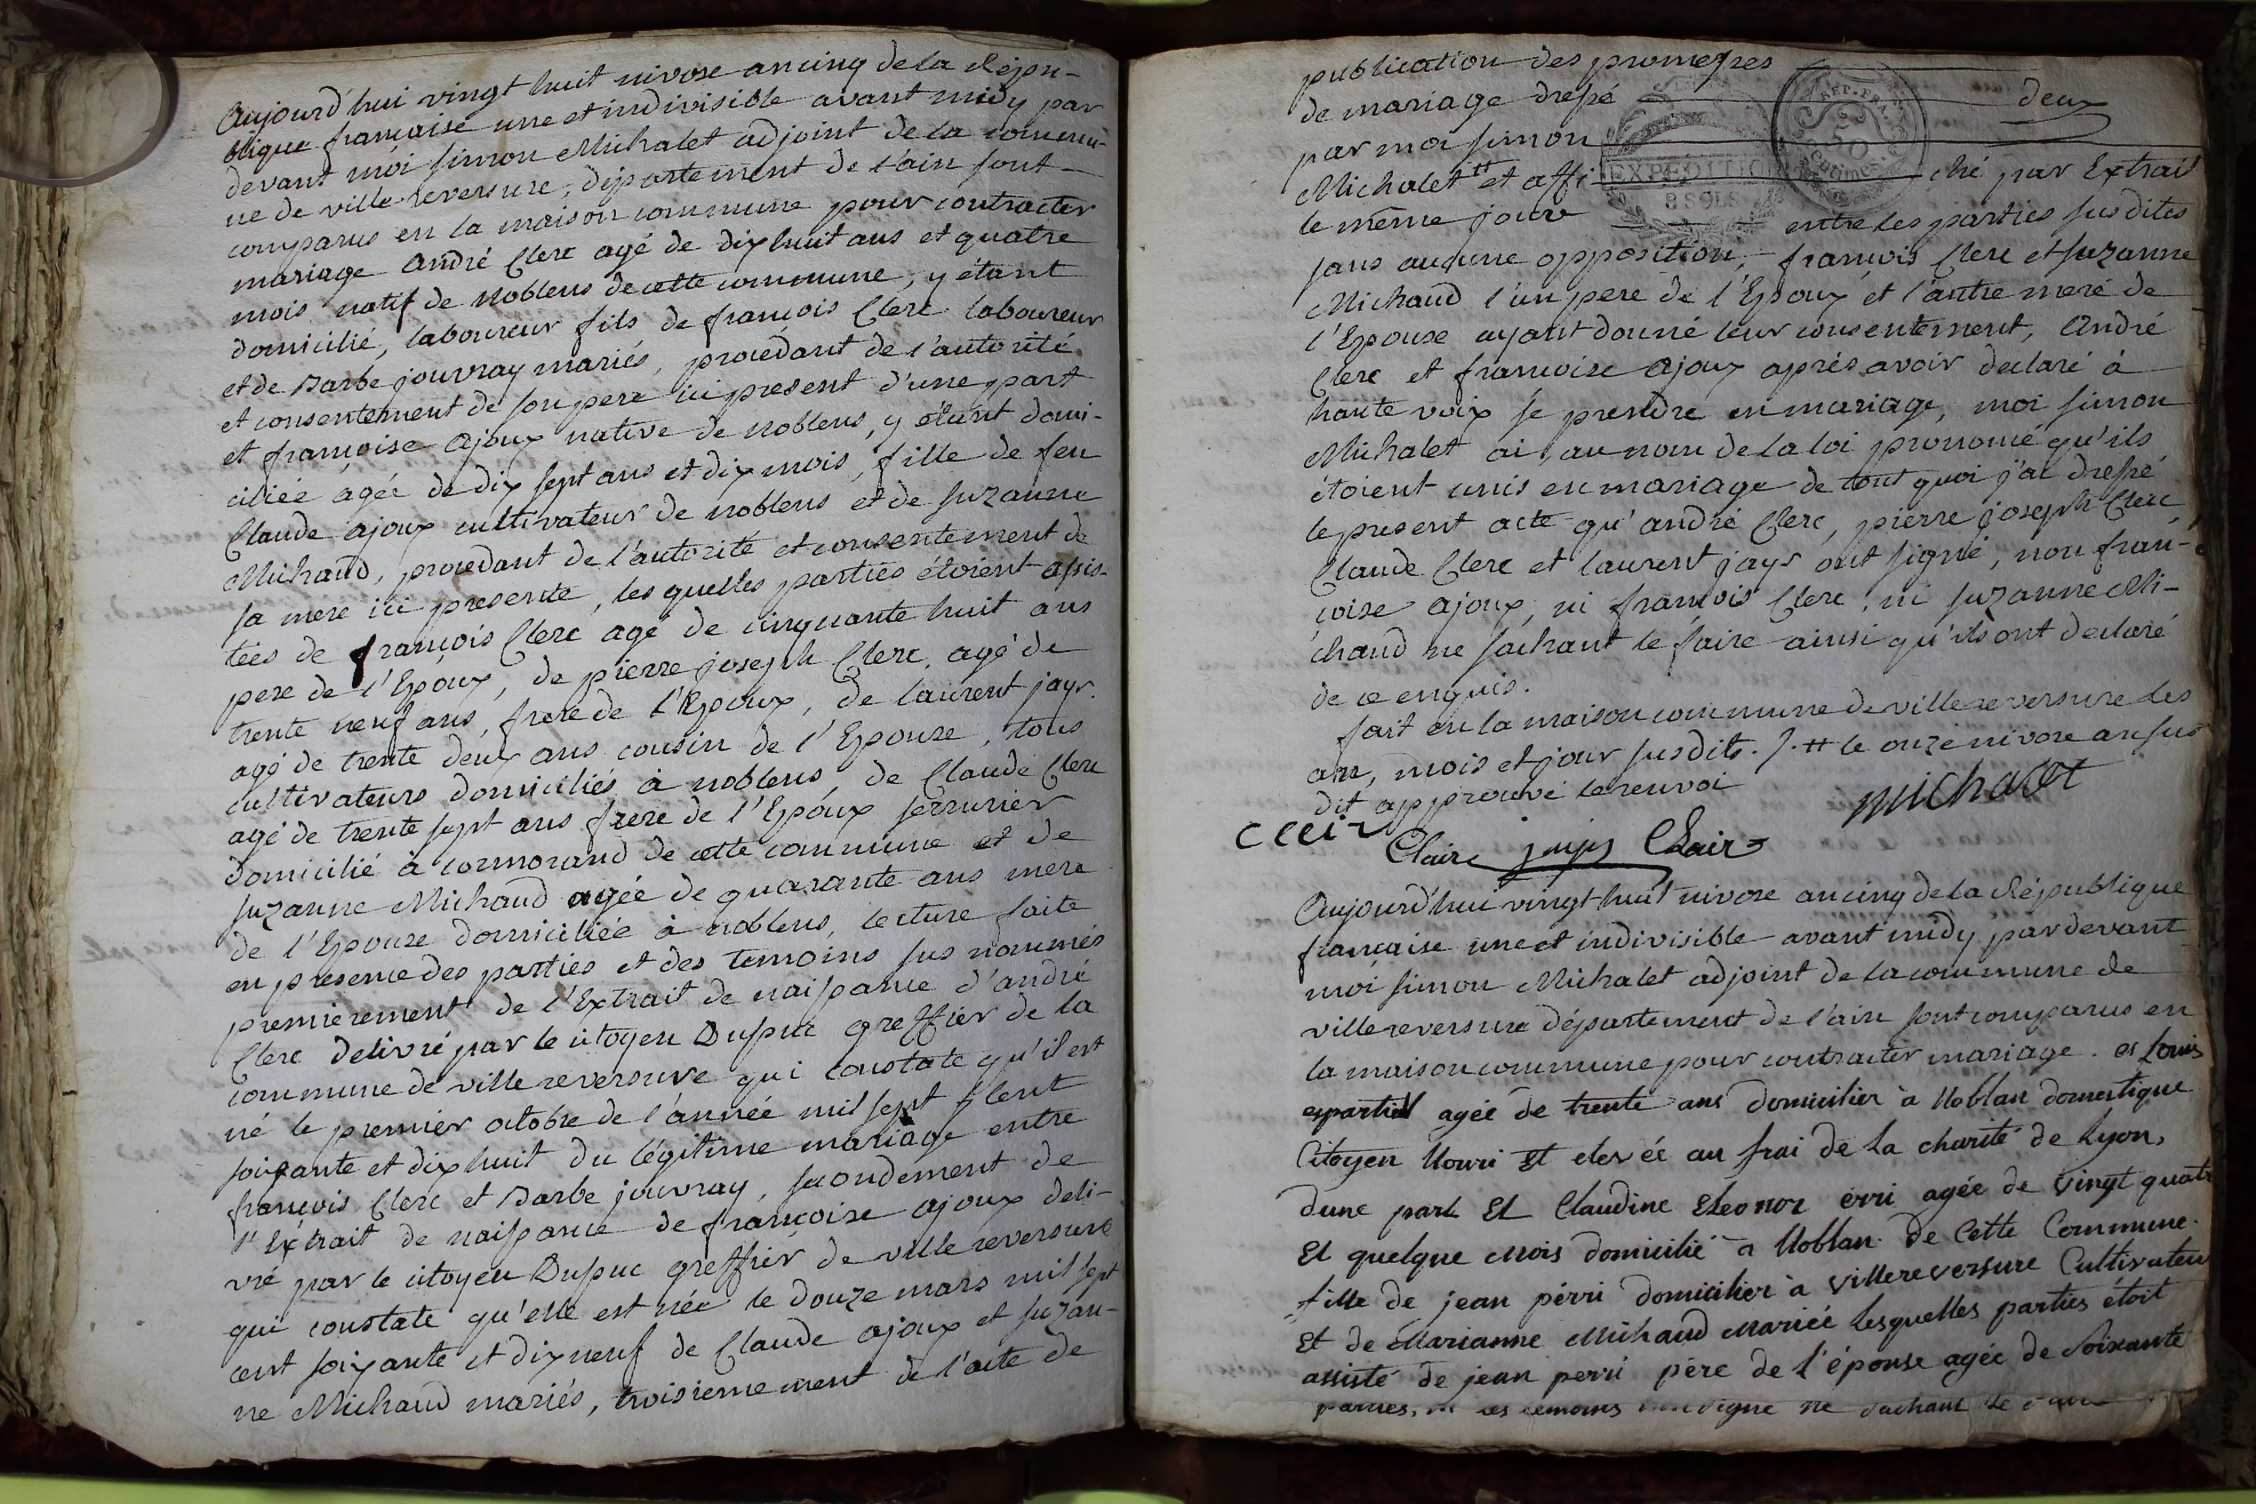 Aujourd'hui vingt huit nivose an cinq de la Répu-
blique française une et indivisible avant midy par
devant moi simon Michalet adjoint de la commu-
ne de ville reversure, département de l'ain sont
comparus en la maison commune pour contracter
mariage André Clerc agé de dix huit ans et quatre
mois natif de noblens de cette commune, y étant
domicilié, laboureur fils de françois Clerc laboureur
et de Barbe jouvray mariés, procédant de l'autorité
et consentement de son pere ici present d'une part
et françoise ajoux native de noblens, y étant domi-
ciliée agée de dix sept ans et dix mois, fille de feu
Claude ajoux cultivateur de noblens et de suzanne
Michaud, procedant de l'autorité et consentement de
sa mere ici presente, les quelles parties étoient assis-
tées de françois Clerc agé de cinquante huit ans
pere de l'Epoux, de pierre joseph Clerc, agé de
trente neuf ans, frere de l'Epoux, de laurent jayr
agé de trente deux ans cousin de l'Epouse, tous
cultivateurs domiciliés à noblens de Claude Clerc
agé de trente sept ans frere de l'Epoux serrurier
domicilié à cormorand de cette commune et de
suzanne Michaud agée de quarante ans mere
de l'Epouse domiciliée à noblens, lecture faite
en presence des parties et des temoins sus nommés
premierement de l'Extrait de naissance d'andré
Clerc delivré par le citoyen Dupuc greffier de la
commune de ville reversure qui constate qu'il est
né le premier octobre de l'année mil sept cent
soixante et dix huit du légitime mariage entre
françois Clerc et Barbe jouvray, secondement de
l'Extrait de naissance de françoise ajoux deli-
vré par le citoyen Dupuc greffier de ville reversure
qui constate qu'elle est née le douze mars mil sept
cent soixante et dix neuf de Claude ajoux et suzan-
ne Michaud mariés, troisiemement de l'acte de
publication des promesses
de mariage dressé deux
par moi simon
Michalet # et affi ché par Extrait
le même jour entre les parties susdites
sans aucune opposition, françois Clerc et suzanne
Michaud l'un pere de l'Epoux et l'autre mere de
l'Epouse ayant donné leur consentement, André
Clerc et françoise ajoux après avoir declaré à
haute voix se prendre en mariage, moi simon
Michalet ai, au nom de la loi prononcé qu'ils
étoient unis en mariage de tout quoi j'ai dressé
le present acte qu'andré Clerc, pierre joseph Clerc,
Claude Clerc et laurent jayr ont signé, non fran-
çoise ajoux, ni françois Clerc, ni suzanne Mi-
chaud ne sachant le faire ainsi qu'ils ont declaré
de ce enquis.
fait en la maison commune de ville reversure les
an, mois et jour susdits. # le onze nivose an sus
dit approuvé le renvoi
Michalet
Claire jayr Clair
Aujourd'hui vingt huit nivose an cinq de la République
française une et indivisible avant midy par devant
moi simon Michalet adjoint de la commune de
ville reversure département de l'ain sont comparus en
la maison commune pour contracter mariage. Louis
agée de trente ans domicilier à Noblan domestique
Citoyen Nouri Et elevée au frai de la charité de Lyon,
dune part Et Claudine Eleonor érri agée de vingt quatre
Et quelque mois domicilié a Noblan. de Cette Commune.
fille de jean pérri domicilier à villereversure Cultivateur
Et de Marianne Michaud Mariée Lesquelles parties étoit
assisté de jean perri père de l'épouse agée de soixante
parties, ni les temoins signe ne sachant le
REP. FRA.
50
centimes.
EXPÉDITION
8 SOLS